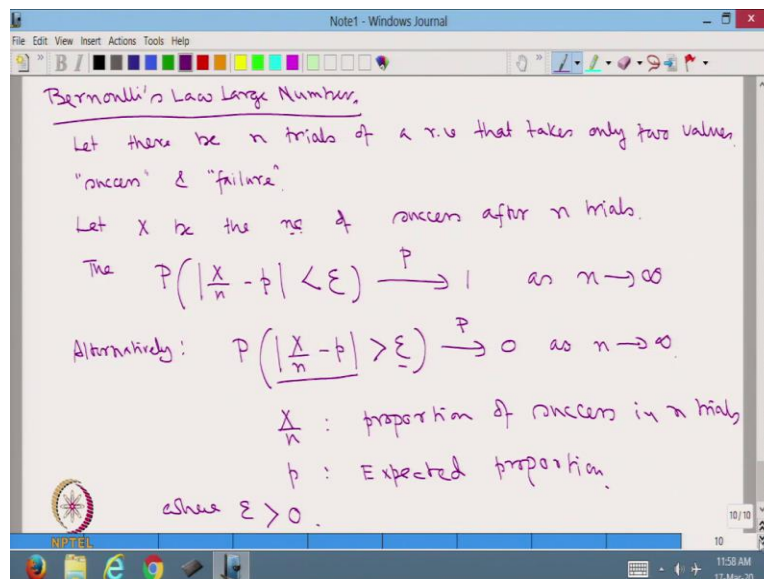 Note1 - Windows Journal
File Edit View Insert Actions Tools Help
B I
Bernoulli's Law Large Number.
Let there be n trials of a r.v that takes only two values
"success" & "failure".
Let X be the no of success after n trials.
The P(|X/n - p| < ε) →^P 1 as n → ∞
Alternatively: P(|X/n - p| > ε) →^P 0 as n → ∞.
X/n : proportion of success in n trials
p : Expected proportion.
where ε > 0.
NPTEL
10/10
10
11:58 AM
17-Mar-20